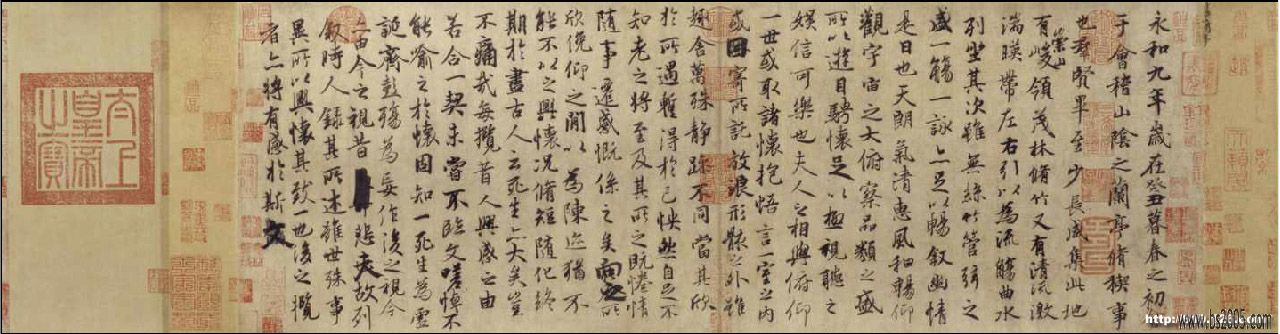 永和九年歲在癸丑暮春之初
于會稽山陰之蘭亭脩稧事
也羣賢畢至少長咸集此地
有崇山峻領茂林脩竹又有清流激
湍暎帶左右引以為流觴曲水
列坐其次雖無絲竹管弦之
盛一觴一詠亦足以暢敘幽情
是日也天朗氣清惠風和暢仰
觀宇宙之大俯察品類之盛
所以遊目騁懷足以極視聽之
娛信可樂也夫人之相與俯仰
一世或取諸懷抱悟言一室之內
或因寄所託放浪形骸之外雖
趣舍萬殊靜躁不同當其欣
於所遇蹔得於己怏然自足不
知老之將至及其所之既惓情
隨事遷感慨係之矣向之所
欣俛仰之閒以為陳迹猶不
能不以之興懷況脩短隨化終
期於盡古人云死生亦大矣豈
不痛哉每攬昔人興感之由
若合一契未嘗不臨文嗟悼不
能喻之於懷固知一死生為虛
誕齊彭殤為妄作後之視今
亦由今之視昔悲夫故列
敘時人錄其所述雖世殊事
異所以興懷其致一也後之攬
者亦將有感於斯文
太上
皇帝
之寶